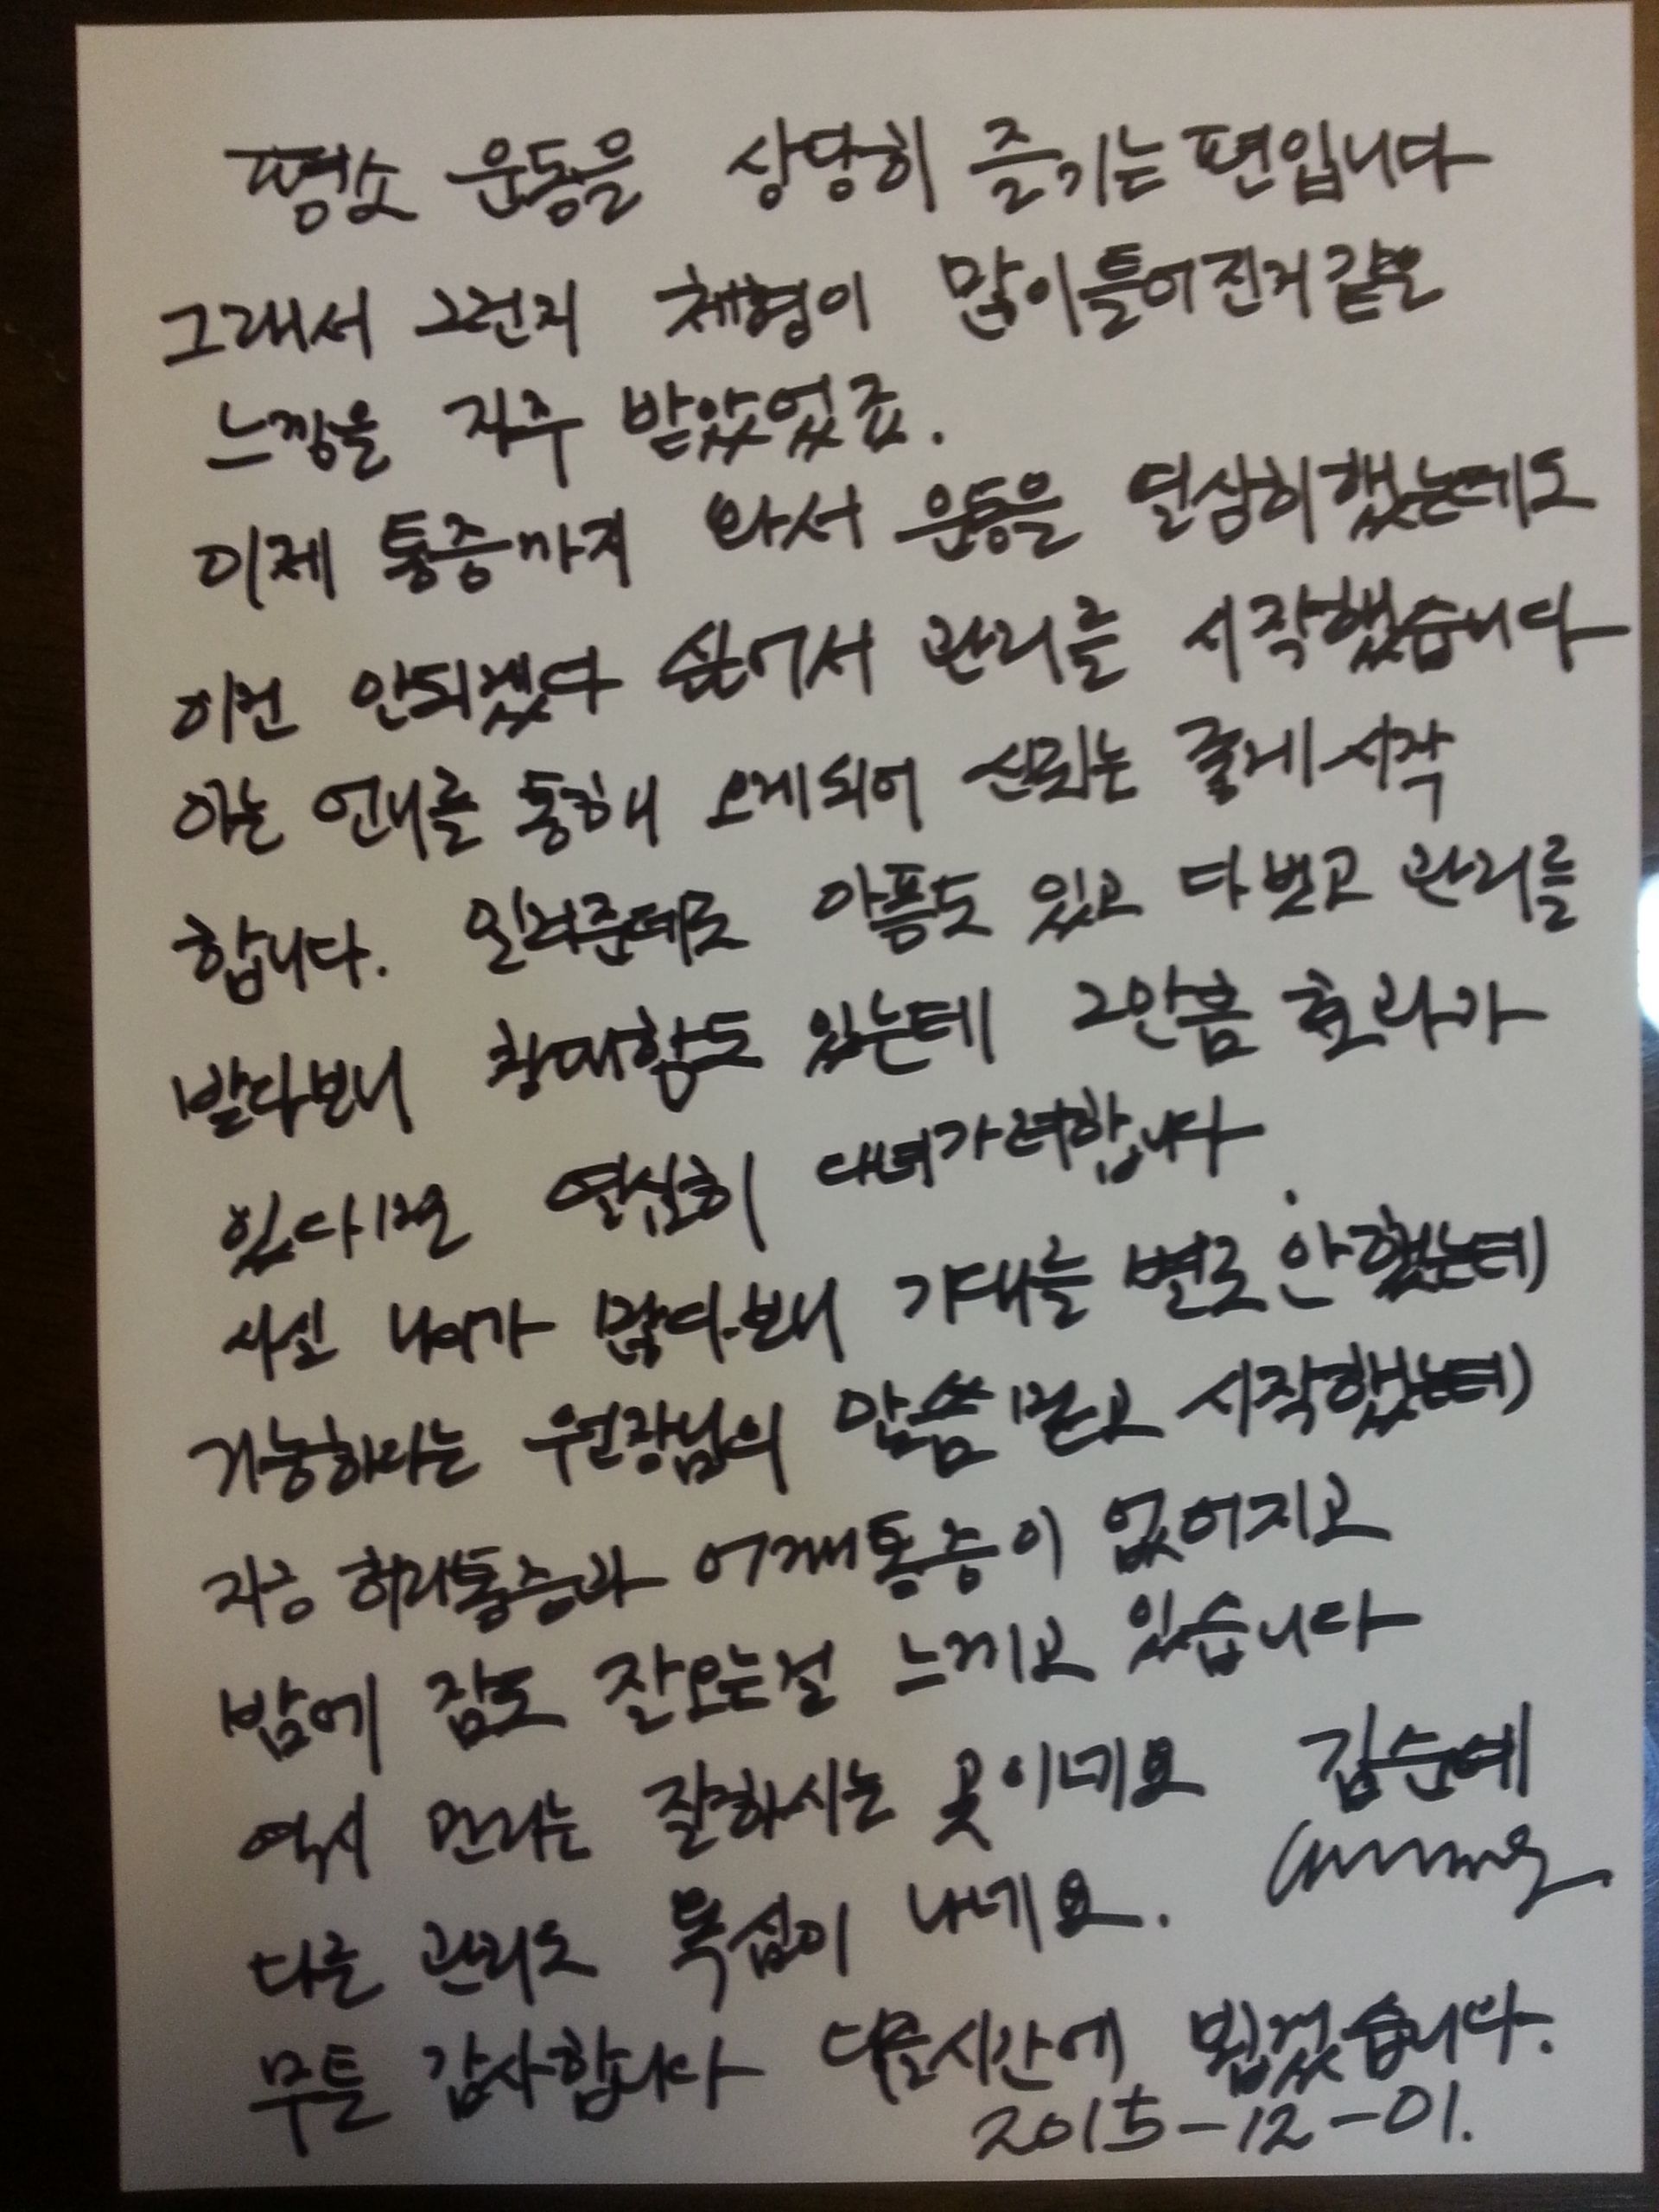 평소 운동을 상당히 즐기는 편입니다
그래서 그런지 체형이 많이 틀어진거 같은
느낌을 자주 받았었죠.
이제 통증까지 와서 운동을 열심히 했는데도
이건 안되겠다 싶어서 관리를 시작했습니다
아는 언니를 통해 오게되어 신뢰는 줄게 시작
합니다. 알려준데로 아픔도 있고 다 벗고 관리를
받다보니 창대함도 있는데 그만큼 효과가
있다면 열심히 대녀가려합니다.
사실 나이가 많다보니 기대를 별로 안했는데
가능하다는 원장님의 말씀 믿고 시작했는데
지금 허리통증과 어깨통증이 없어지고
밤에 잠도 잘오는걸 느끼고 있습니다
역시 잘하시는 곳이네요 김순예
다른 관리도 욕심이 나네요.
무튼 감사합니다 다음시간에 뵙겠습니다.
2015-12-01.